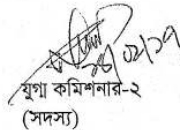 যুগ্ম কমিশনার-২
(সদস্য)